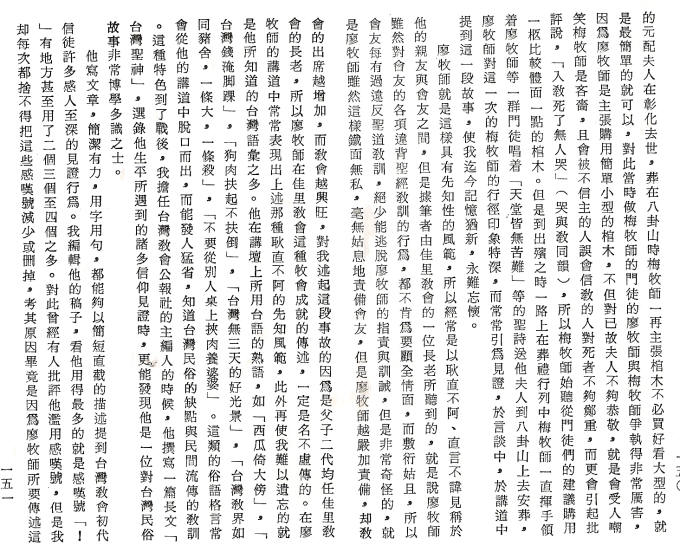 的元配夫人在彰化去世，葬在八卦山時梅牧師一再主張棺木不必買好看大型的，就
是最簡單的就可以，對此當時做梅牧師的門徒的廖牧師與梅牧師爭執得非常厲害，
因爲廖牧師是主張購用簡單小型的棺木，不但對已故夫人不夠恭敬，就是會受人嘲
笑梅牧師是客嗇，且會被不信主的人誤會信敎的人對死者不夠鄭重，而更會引起批
評說，「入敎死了無人哭」（哭與敎同韻），所以梅牧師始聽從門徒們的建議購用
一柩比較體面一點的棺木。但是到出殯之時一路上在葬禮行列中梅牧師一直揮手領
着廖牧師等一群門徒唱着「天堂皆無苦難」等的聖詩送他夫人到八卦山上去安葬，
廖牧師對這一次的梅牧師的行徑印象特深，而常常引爲見證，於言談中，於講道中
提到這一段故事，使我迄今記憶猶新，永難忘懷。
廖牧師就是這樣具有先知性的風範，所以經常是以耿直不阿、直言不諱見稱於
他的親友與會友之間，但是據筆者由佳里敎會的一位長老所聽到的，就是說廖牧師
雖然對會友的各項違背聖經敎訓的行爲，都不肯爲要顧全情面，而敷衍姑且，所以
會友每有過違反聖道敎訓，絕少能逃脫廖牧師的指責與訓誡，但是非常奇怪的，就
是廖牧師雖然這樣鐵面無私，毫無姑息地責備會友，但是廖牧師越嚴加責備，却敎
會的出席越增加，而敎會越興旺，對我述起這段事故的因爲是父子二代均任佳里敎
會的長老，所以廖牧師在佳里敎會這種牧會成就的傳述，一定是名不虛傳的。在廖
牧師的講道中常常表現出上述那種耿直不阿的先知風範，此外再使我難以遺忘的就
是他所知道的台灣語彙之多。他在講壇上所用台語的熟語，如「西瓜倚大傍」，「
台灣錢淹脚踝」，「狗肉扶起不扶倒」，「台灣無三天的好光景」，「台灣敎界如
同豬舍，一條大，一條殺」，「不要從別人桌上挾肉養婆婆」。這類的俗語格言常
會從他的講道中脫口而出，而能發人猛省，知道台灣民俗的缺點與民間流傳的敎訓
。這種特色到了戰後，我擔任台灣敎會公報社的主編人的時候，他撰寫一篇長文「
台灣聖神」，選錄他生平所遇到的諸多信仰見證時，更能發現他是一位對台灣民俗
故事非常博學多識之士。
他寫文章，簡潔有力，用字用句，都能夠以簡短直截的描述提到台灣敎會初代
信徒許多感人至深的見證行爲。我編輯他的稿子，看他用得最多的就是感嘆號「！
」有地方甚至用了二個三個至四個之多。對此曾經有人批評他濫用感嘆號，但是我
却每次都捨不得把這些感嘆號減少或刪掉，考其原因畢竟是因爲廖牧師所要傳述這
一五一